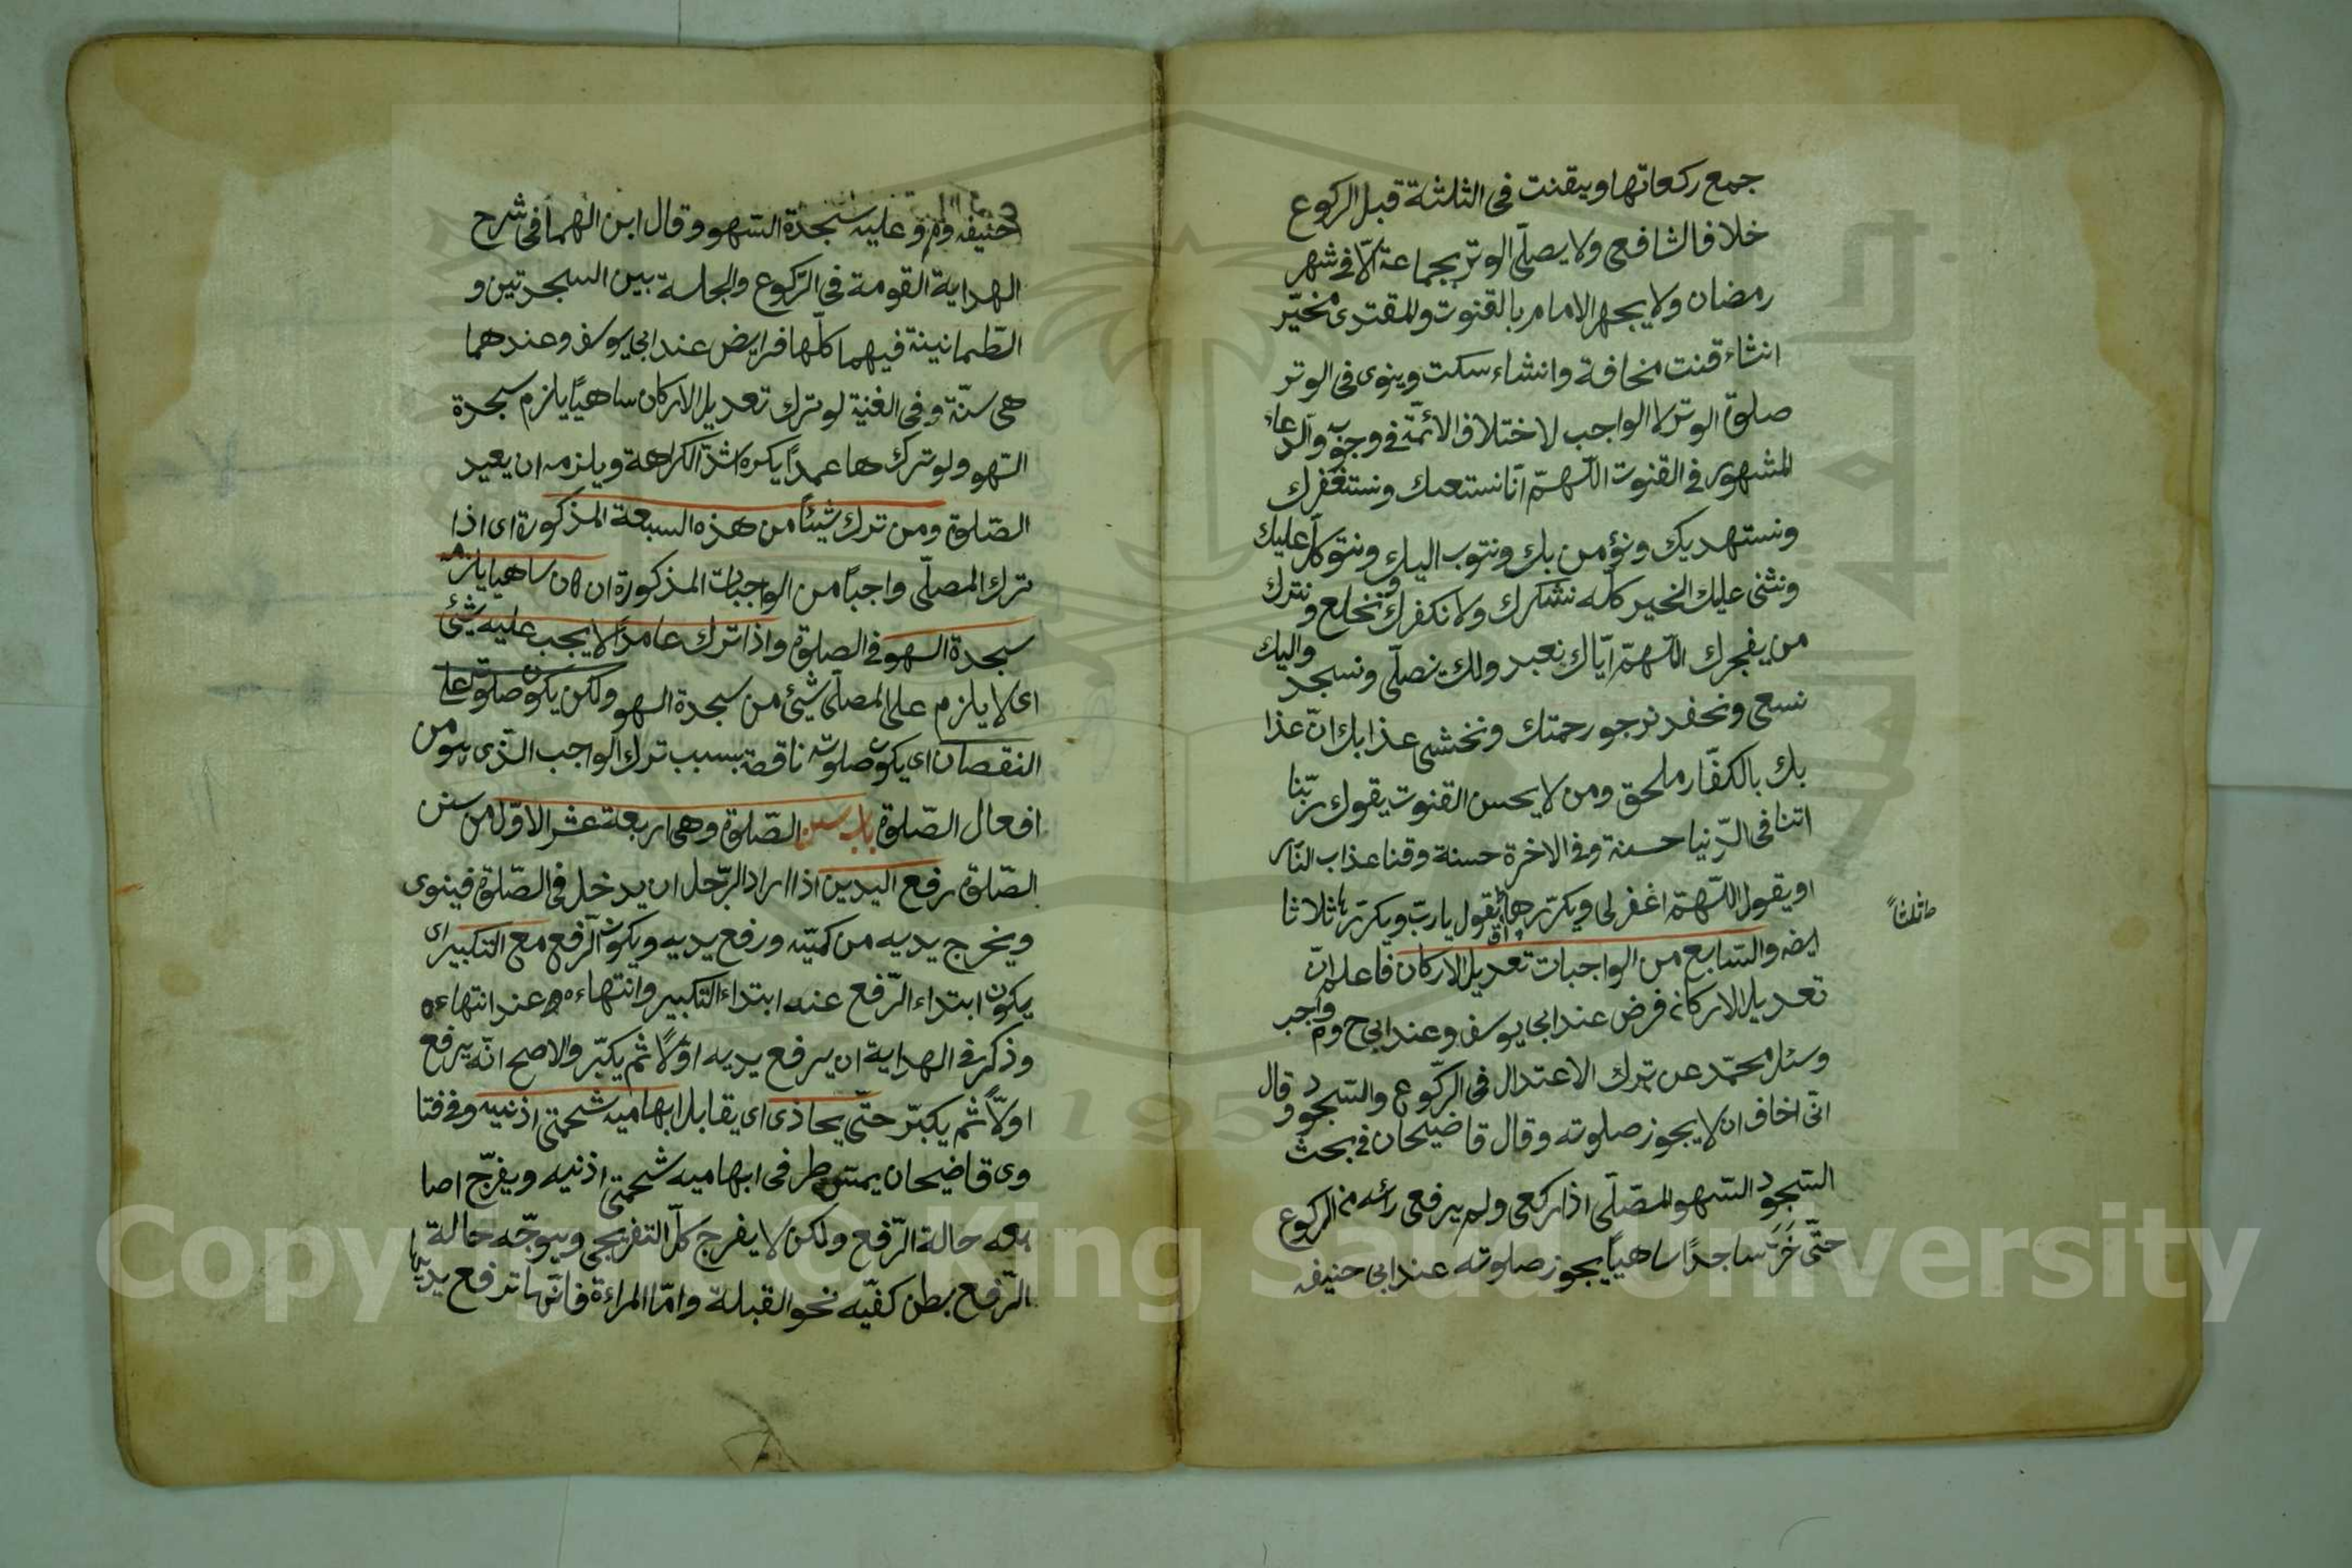 جمع ركعاتها ويقنت فى الثلثة قبل الركوع
خلافا لشافعى ولا يصلّى الوتر بجماعة الّا فى شهر
رمضان ولا يجهر الامام بالقنوت والمقتدى مخيّر
انشاء قنت مخافة وانشاء سكت وينوى فى الوتر
صلوة الوتر لا الواجب لاختلاف الائمّة فى وجوبه والدعاء
المشهور فى القنوت اللّهمّ انّا نستعينك ونستغفرك
ونستهديك ونؤمن بك ونتوب اليك ونتوكّل عليك
ونثنى عليك الخير كلّه نشكرك ولا نكفرك ونخلع ونترك
من يفجرك اللّهمّ ايّاك نعبد ولك نصلّى ونسجد واليك
نسعى ونحفد نرجو رحمتك ونخشى عذابك انّ عذا
بك بالكفّار ملحق ومن لا يحسن القنوت يقول ربّنا
اتنا فى الدّنيا حسنة وفى الاخرة حسنة وقنا عذاب النّار
او يقول اللّهمّ اغفرلى ويكرّرها ثلثاً او يقول يا ربّ ويكرّرها ثلاثا
ايضه والسّابع من الواجبات تعديل الاركان فاعلم انّ
تعديل الاركان فرض عند ابى يوسف وعند ابى ح وم واجب
وسئل محمّد عن ترك الاعتدال فى الرّكوع والسّجود وقال
انّى اخاف ان لا يجوز صلوته وقال قاضيخان فى بحث
السّجود السّهو المصّلّى اذا ركعى ولم يرفعى رأسه من الركوع
حتّى خَرَّ ساجدًا ساهيًا يجوز صلوته عند ابى حنيفه
حنيفه وم وعليه سجدة السّهو وقال ابن الهمام فى شرح
الهداية القومة فى الرّكوع والجلسة بين السجدتين و
الطّمانينة فيهما كلّها فرايض عند ابى يوسف وعندهما
هى سنّة وفى الغنية لو ترك تعديل الاركان ساهيًا يلزم سجدة
السّهو ولو ترك ها عمدًا يكره اشدّ الكراهة ويلزمه ان يعيد
الصّلوة ومن ترك شيئًا من هذه السبعة المذكورة اى اذا
ترك المصلّى واجبًا من الواجبات المذكورة ان كان ساهيا يلزمه
سجدة السهو فى الصلوة واذا ترك عامدًا لا يجب عليه شئ
اى لا يلزم على المصلّى شئ من سجدة السهو ولكن يكون صلوته على
النقصان اى يكون صلوته ناقصة بسبب ترك الواجب الّذى هو من
افعال الصّلوة باب سنن الصّلوة وهى اربعة عشر الاوّل من سنن
الصّلوة رفع اليدين اذا اراد الرّجل ان يدخل فى الصّلوة فينوى
ويخرج يديه من كميّه ورفع يديه ويكون الرّفع مع التكبير اى
يكون ابتداء الرّفع عنه ابتداء التكبير وانتهاءه عند انتهاءه
وذكر فى الهداية ان يرفع يديه اوّلًا ثم يكبّر والاصح انّه يرفع
اولًا ثم يكبّر حتّى يحاذى اى يقابل ابهاميه شحمتى اذنيه وفى فتا
وى قاضيخان يمسّ طرفى ابهاميه شحمتى اذنيه ويفرّج اصا
بعه حالة الرّفع ولكن لا يفرج كلّ التفريجى ويوجّه حالة
الرّفع بطن كفّيه نحو القبلة وامّا المراءة فانّها ترفع يديها